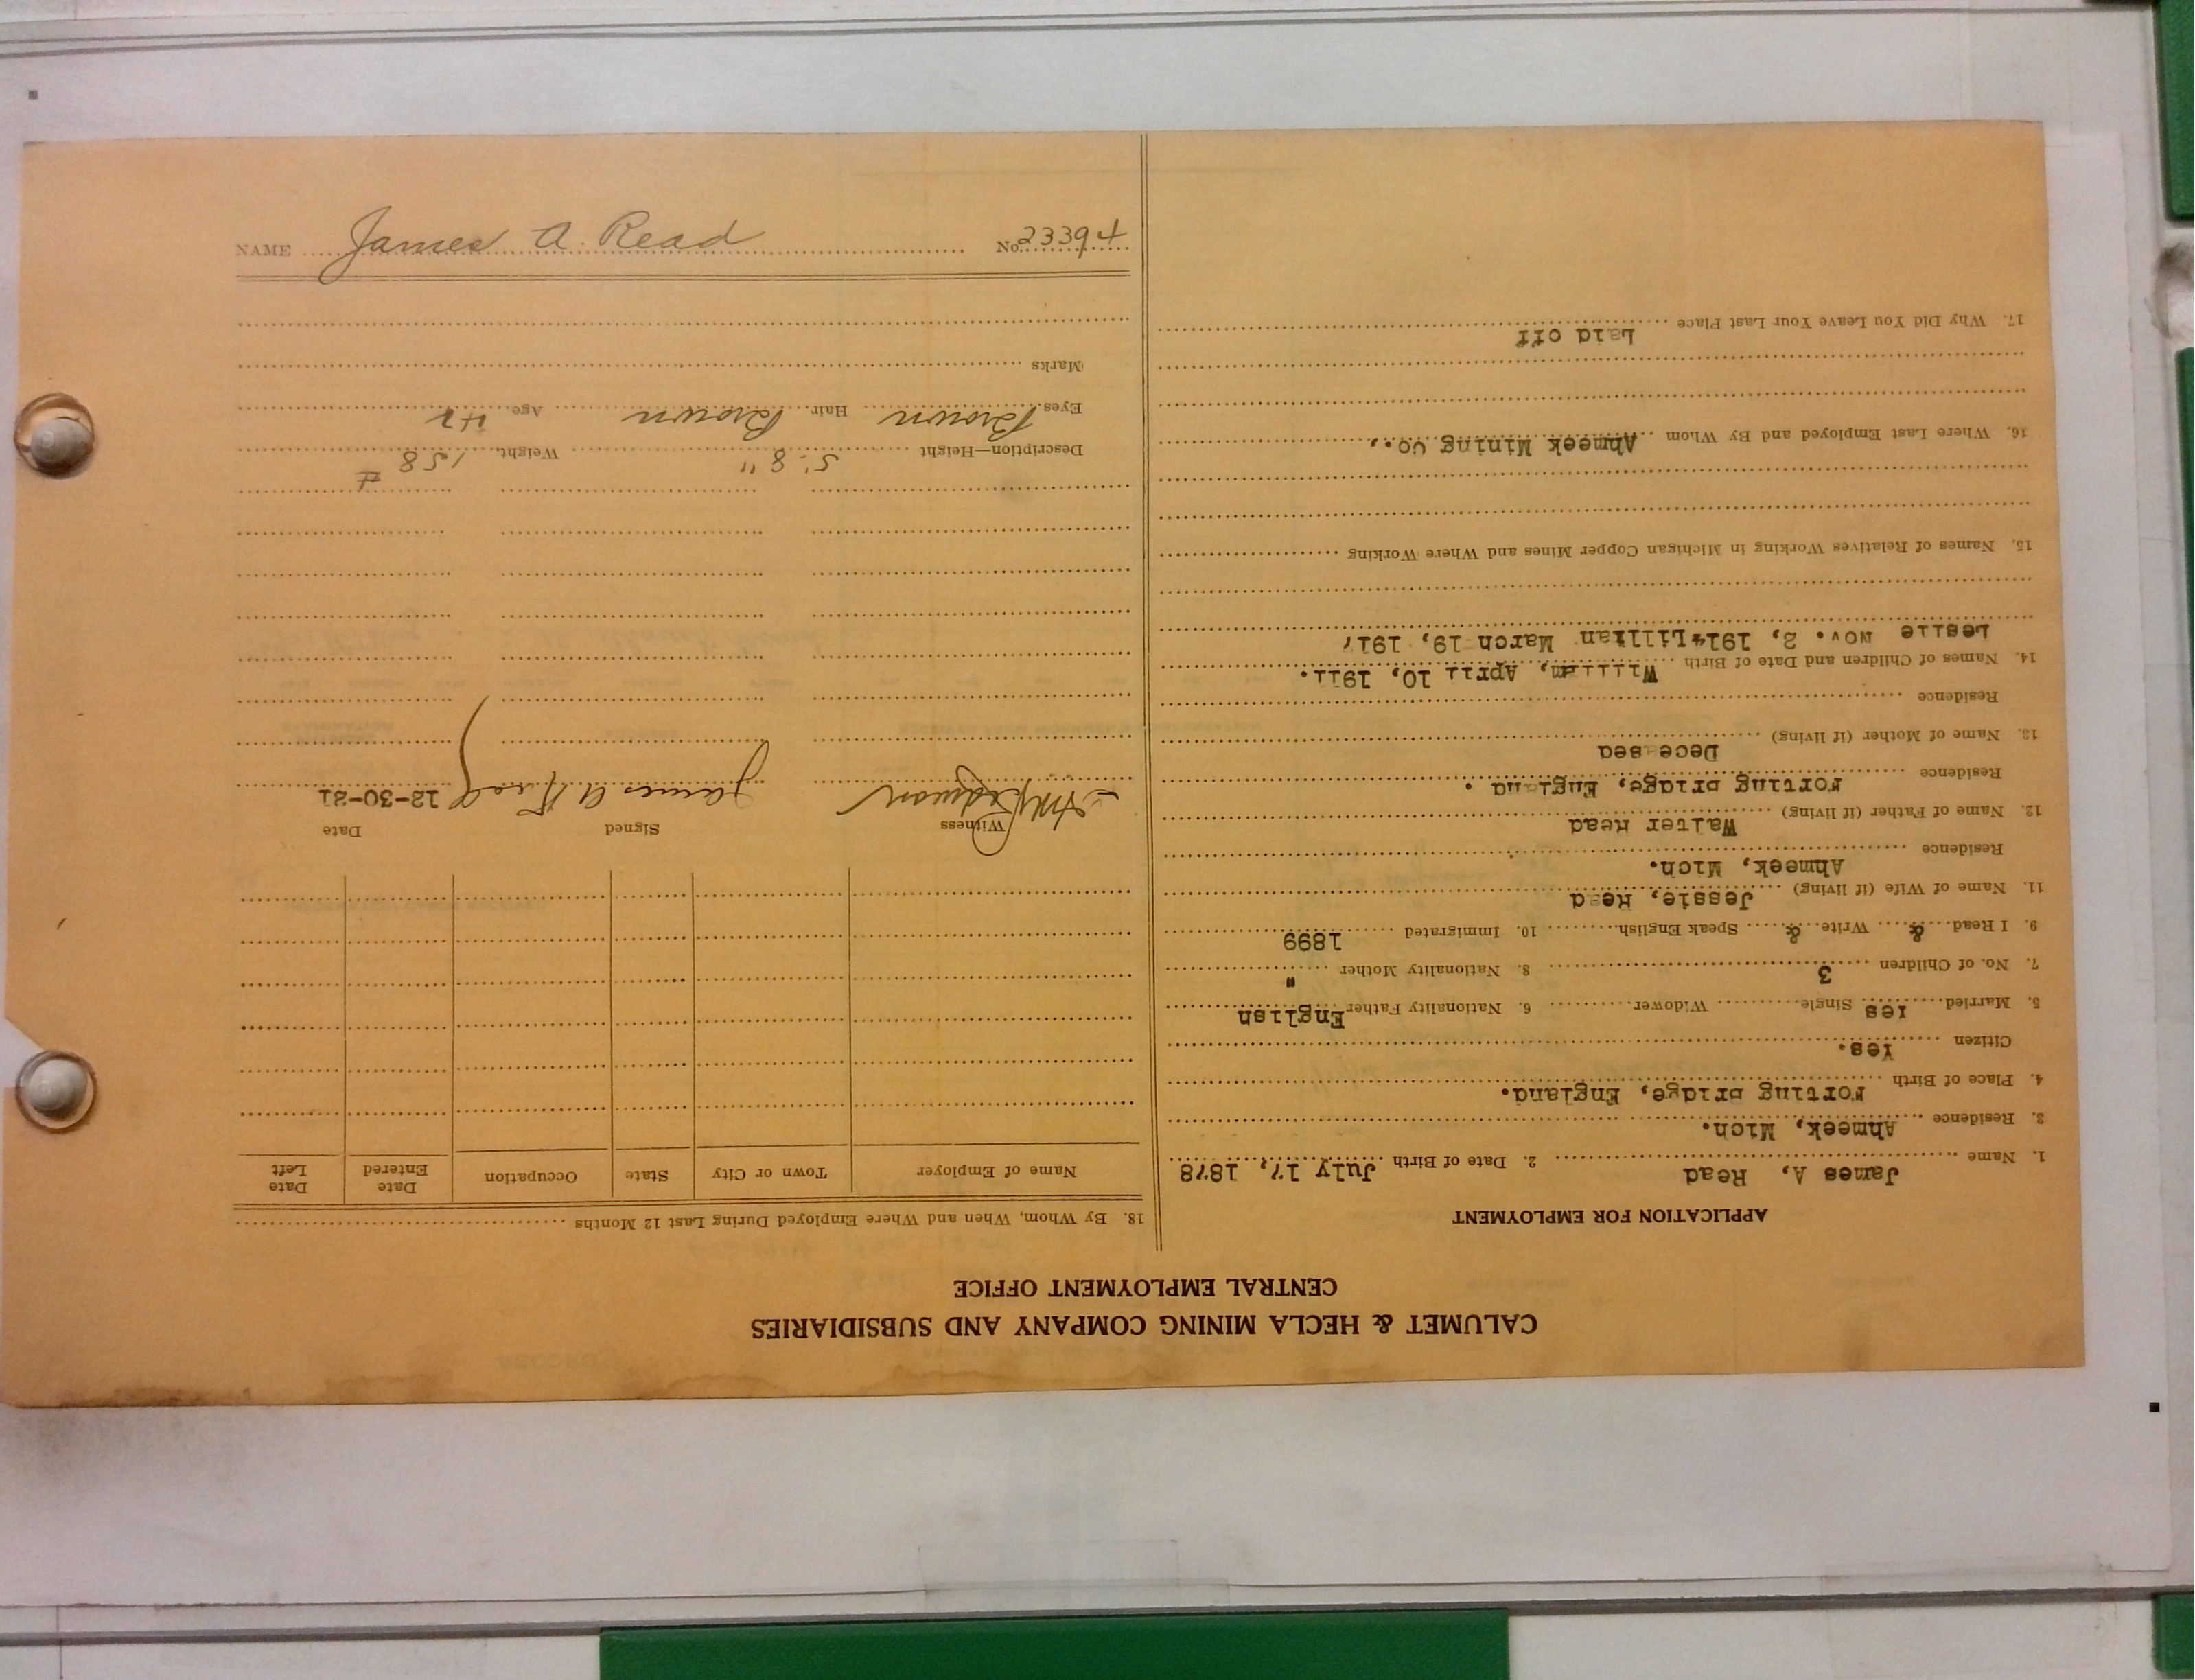 CALUMET & HECLA MINING COMPANY AND SUBSIDIARIES
CENTRAL EMPLOYMENT OFFICE
APPLICATION FOR EMPLOYMENT
1. Name James A, Read 2. Date of Birth July 17, 1878
3. Residence Ahmeek, Mich.
4. Place of Birth Fording Bridge, England.
Citizen Yes.
5. Married Yes Single Widower 6. Nationality Father English
7. No. of Children 3 8. Nationality Mother "
9. I Read & Write & Speak English 10. Immigrated 1899
11. Name of Wife (if living) Jessie, Read
Residence Ahmeek, Mich.
12. Name of Father (if living) Walter Read
Residence Fording Bridge, England .
13. Name of Mother (if living) Deceased
Residence
14. Names of Children and Date of Birth William, April 10, 1911.
Leslie Nov. 2, 1914 Lillian March 19, 1917
15. Names of Relatives Working in Michigan Copper Mines and Where Working
16. Where Last Employed and By Whom Ahmeek Mining Co.,
17. Why Did You Leave Your Last Place Laid off
18. By Whom, When and Where Employed During Last 12 Months
Name of Employer Town or City State Occupation Date Entered Date Left
Witness Signed Date
James A Read 12-30-21
Description—Height 5' 8" Weight 158 #
Eyes Brown Hair Brown Age 42
Marks
NAME James A. Read No. 23394